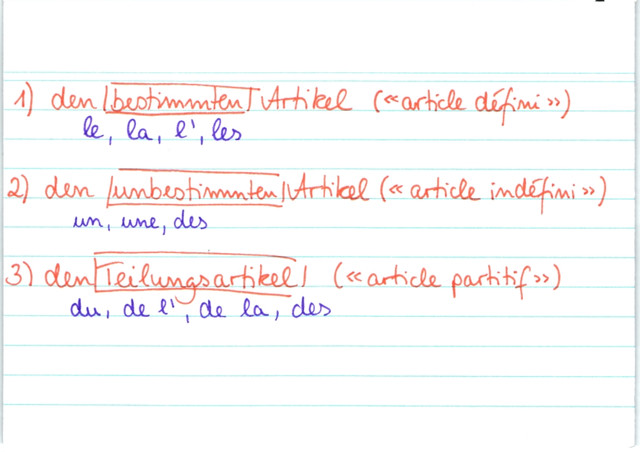 1) den bestimmten Artikel (« article défini »)
le, la, l', les
2) den unbestimmten Artikel (« article indéfini »)
un, une, des
3) den Teilungsartikel (« article partitif »)
du, de l', de la, des